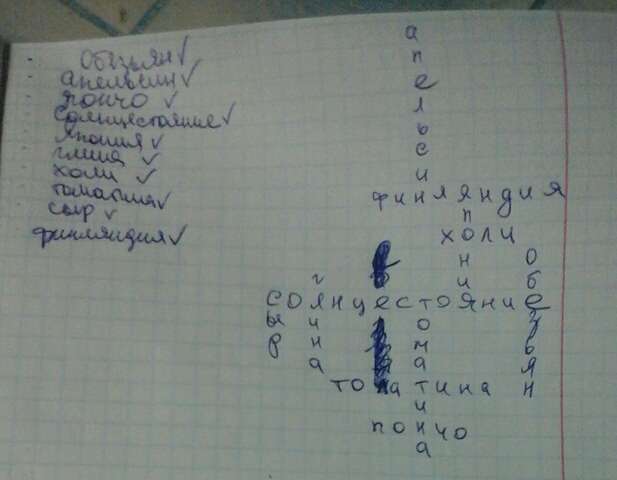 обезьян
апельсин
пончо
солнцестояние
япония
глина
холи
томатина
сыр
финляндия
апельсин
финляндия
япони
холи
обезьян
глина
солнцестояние
сыр
томатина
томатина
пончо